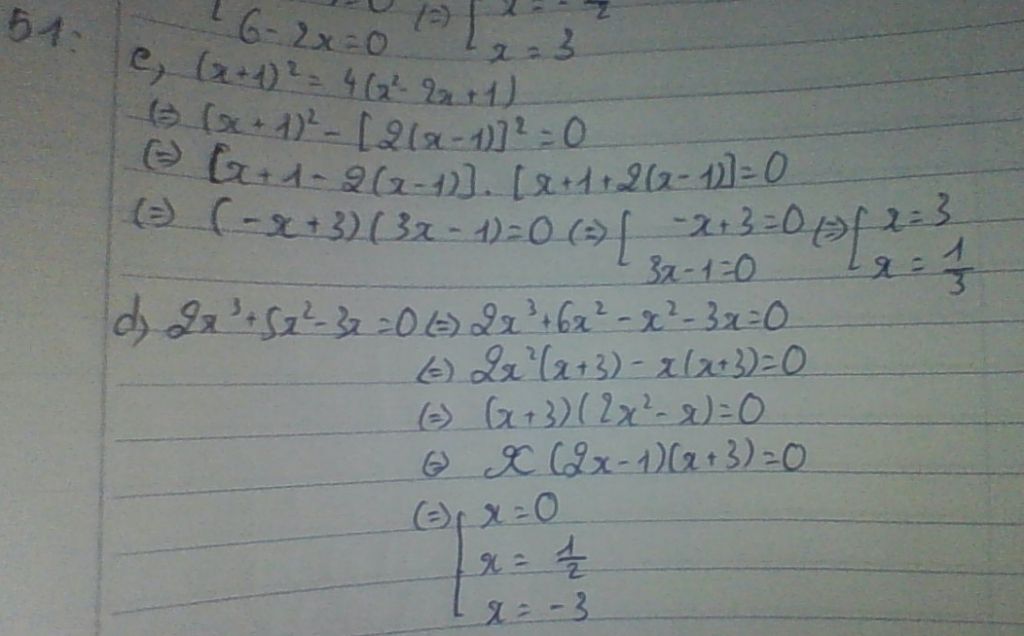 51:
6-2x=0 (=) [ x=3
c, (x+1)² = 4(x²-2x+1)
(=) (x+1)² - [2(x-1)]² = 0
(=) [x+1-2(x-1)].[x+1+2(x-1)]=0
(=) (-x+3)(3x-1)=0 (=) [ -x+3=0 (=) [ x=3
3x-1=0 x = 1/3
d, 2x³+5x²-3x=0 (=) 2x³+6x²-x²-3x=0
(=) 2x²(x+3)-x(x+3)=0
(=) (x+3)(2x²-x)=0
(=) x(2x-1)(x+3)=0
(=) [ x=0
x = 1/2
x = -3